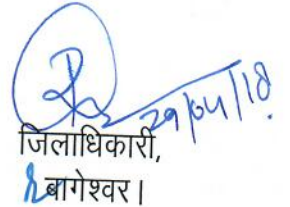 29/04/18
जिलाधिकारी,
बागेश्वर।